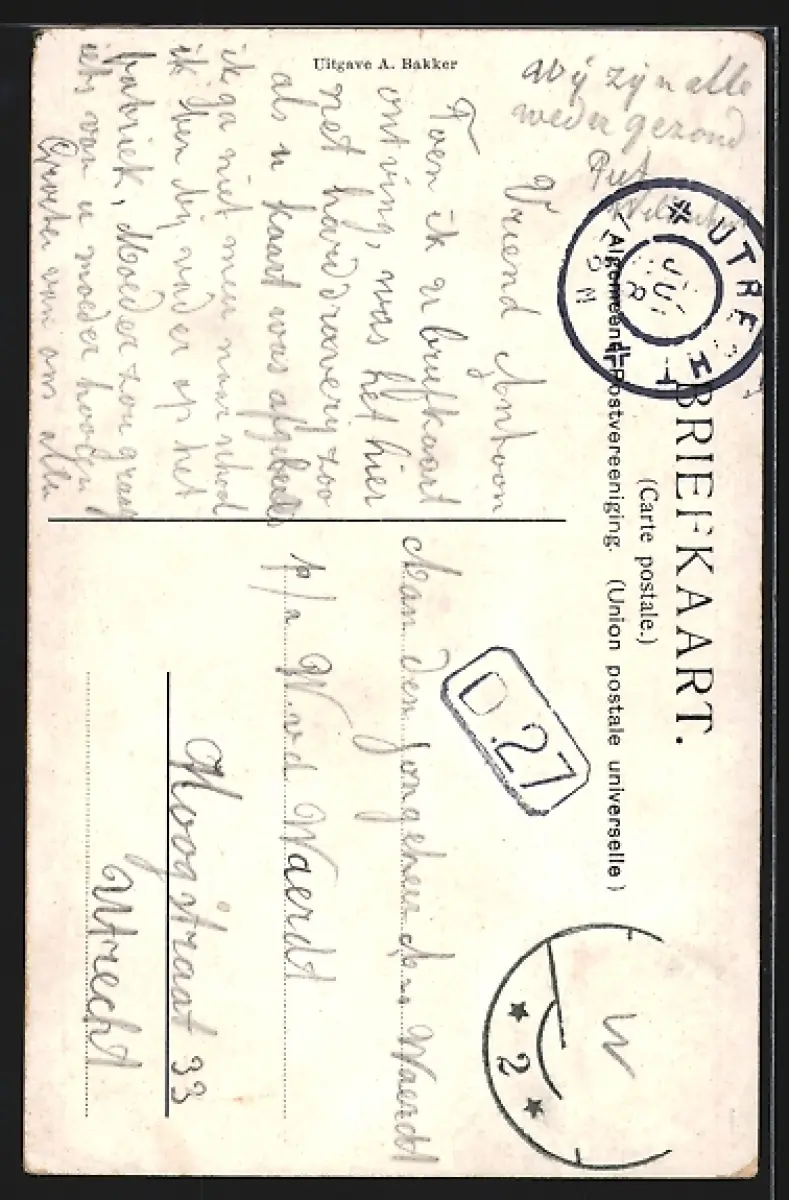 Uitgave A. Bakker
BRIEFKAART.
(Carte postale.)
Algemeene Postvereeniging. (Union postale universelle)
UTRECHT
D.27
2
W
Wij zijn alle
weder gezond
Piet
Vriend Antoon
Toen ik u briefkaart
ontving, was het hier
net harddraverij zoo
als u kaart was
ik ga niet meer naar school
ik ben bij vader op het
fabriek, Moeder zou graag
iets van u moeder hooren
Groeten van ons alle
Aan den Jongeheer A. v. Waerdt
p/a W. v.d. Waerdt
Hoogstraat 33
Utrecht